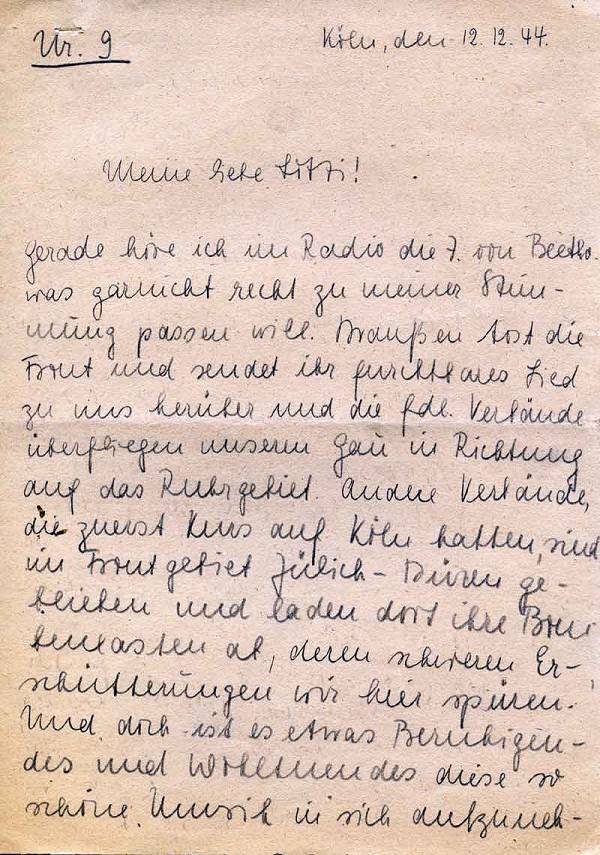 Nr. 9
Köln, den 12.12.44.
Meine liebe Litzi!
gerade höre ich im Radio die 7. von Beetho.
was garnicht recht zu meiner Stim-
mung passen will. Draußen tost die
Front und sendet ihr furchtbares Lied
zu uns herüber und die fdl. Verbände
überfliegen unseren Gau in Richtung
auf das Ruhrgebiet. Andere Verbände,
die zuerst Kurs auf Köln hatten, sind
im Frontgebiet Jülich - Düren ge-
blieben und laden dort ihre Bom
benlasten ab, deren schweren Er-
schütterungen wir hier spüren.
Und doch ist es etwas Beruhigen-
des und Wohltuendes diese so
schöne Musik in sich aufzuneh-